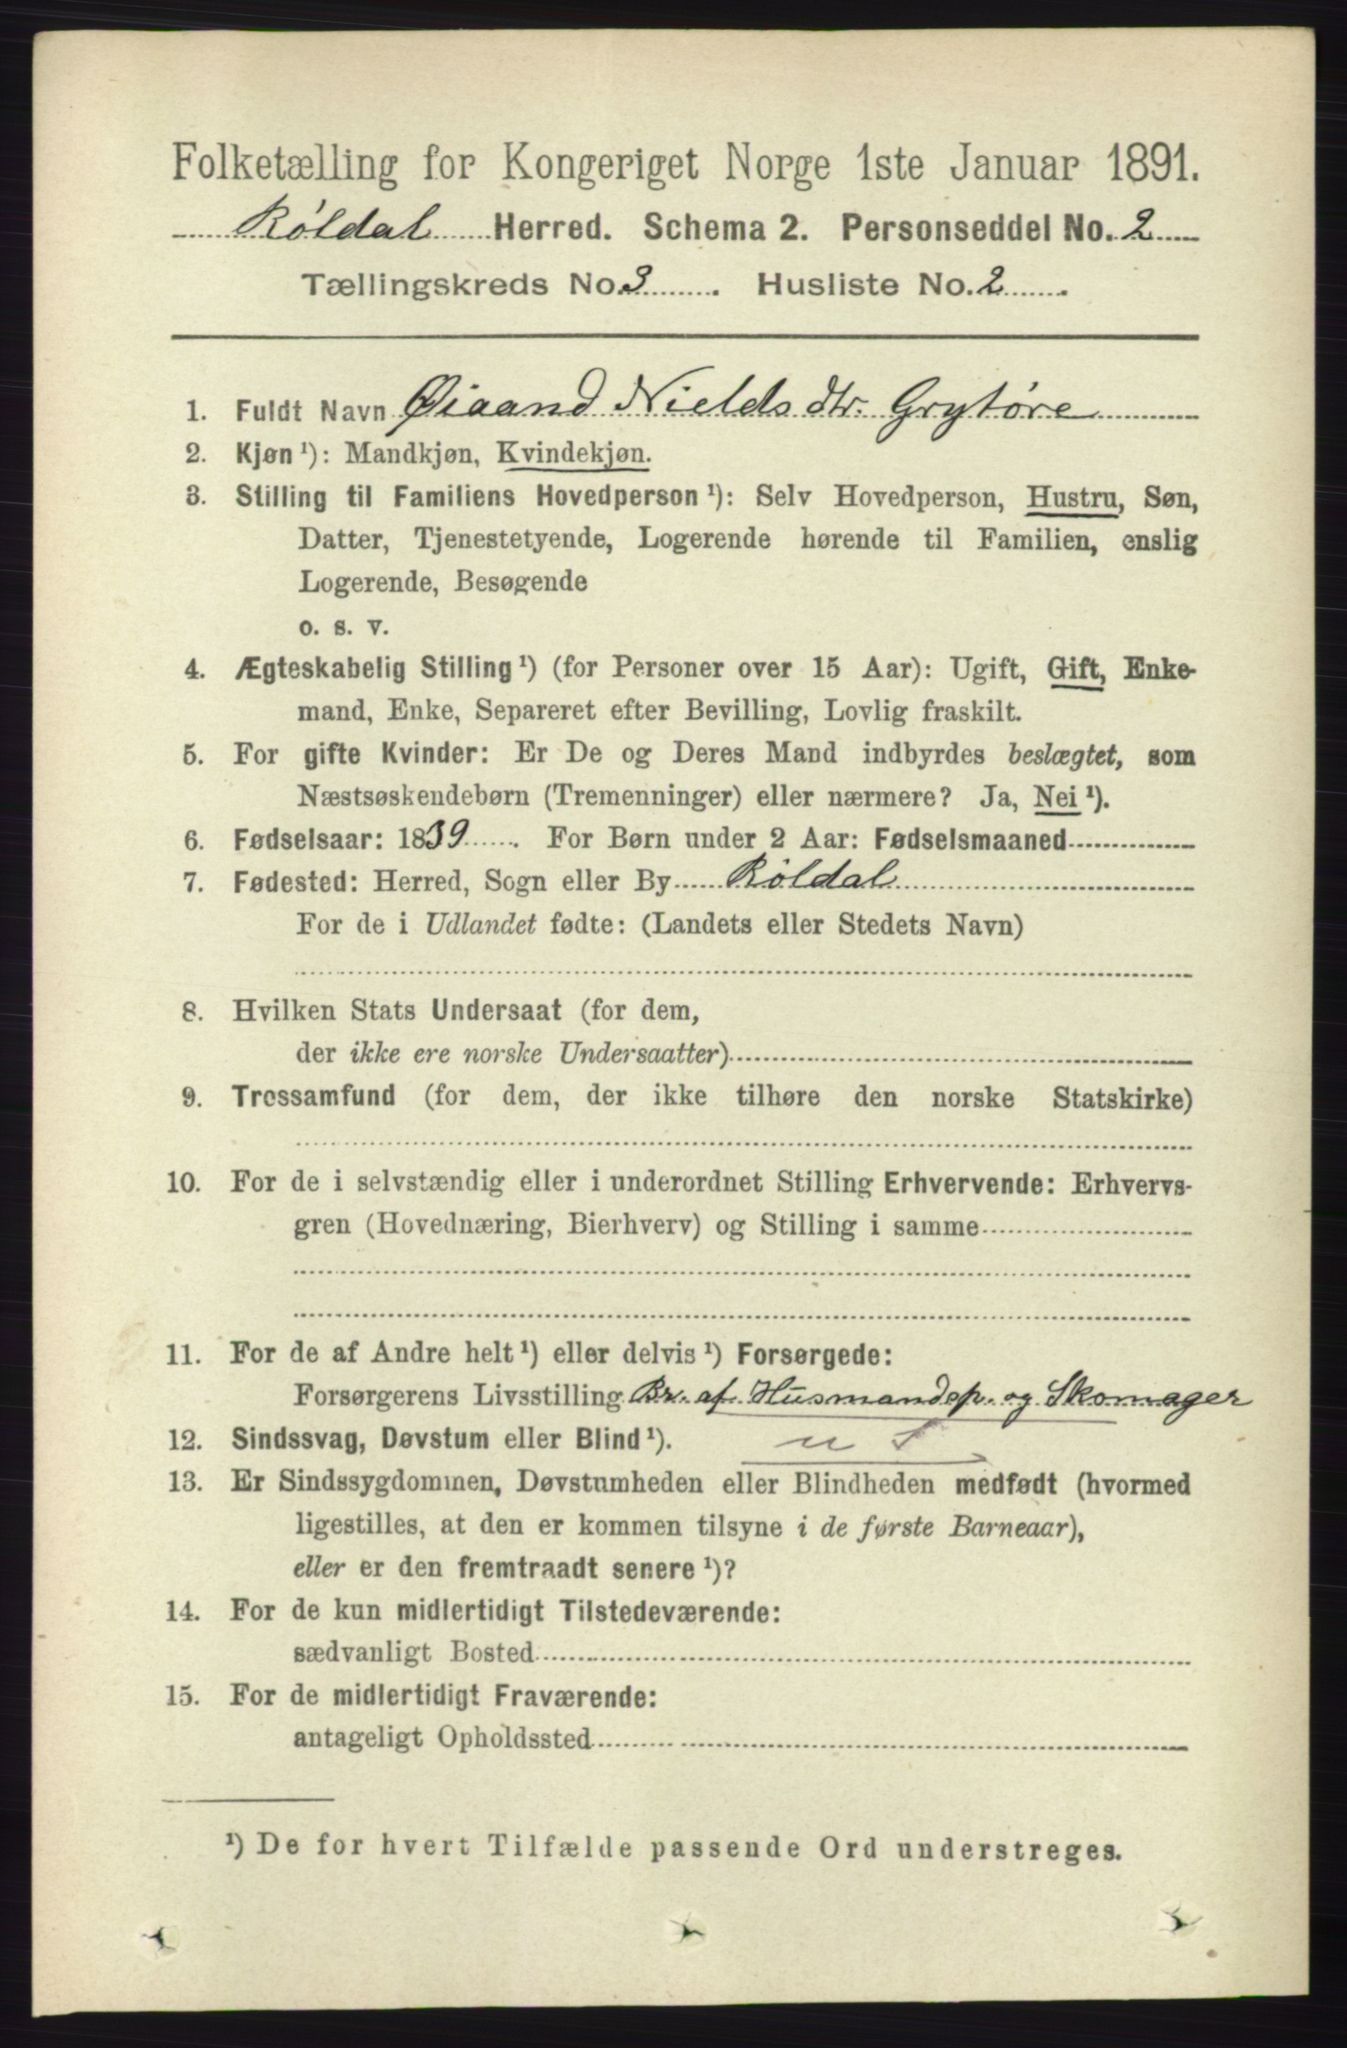 Folketælling for Kongeriget Norge 1ste Januar 1891.
Røldal Herred. Schema 2. Personseddel No. 2
Tællingskreds No. 3. Husliste No. 2.
1. Fuldt Navn Øiaand Nields dtr. Grytøre
2. Kjøn ¹): Mandkjøn, Kvindekjøn.
3. Stilling til Familiens Hovedperson ¹): Selv Hovedperson, Hustru, Søn,
Datter, Tjenestetyende, Logerende hørende til Familien, enslig
Logerende, Besøgende
o. s. v.
4. Ægteskabelig Stilling ¹) (for Personer over 15 Aar): Ugift, Gift, Enke-
mand, Enke, Separeret efter Bevilling, Lovlig fraskilt.
5. For gifte Kvinder: Er De og Deres Mand indbyrdes beslægtet, som
Næstsøskendebørn (Tremenninger) eller nærmere? Ja, Nei ¹).
6. Fødselsaar: 1839. For Børn under 2 Aar: Fødselsmaaned
7. Fødested: Herred, Sogn eller By Røldal
For de i Udlandet fødte: (Landets eller Stedets Navn)
8. Hvilken Stats Undersaat (for dem,
der ikke ere norske Undersaatter)
9. Trossamfund (for dem, der ikke tilhøre den norske Statskirke)
10. For de i selvstændig eller i underordnet Stilling Erhvervende: Erhvervs-
gren (Hovednæring, Bierhverv) og Stilling i samme
11. For de af Andre helt ¹) eller delvis ¹) Forsørgede:
Forsørgerens Livsstilling Br. af Husmandsp. og Skomager
12. Sindssvag, Døvstum eller Blind ¹).
13. Er Sindssygdommen, Døvstumheden eller Blindheden medfødt (hvormed
ligestilles, at den er kommen tilsyne i de første Barneaar),
eller er den fremtraadt senere ¹)?
14. For de kun midlertidigt Tilstedeværende:
sædvanligt Bosted
15. For de midlertidigt Fraværende:
antageligt Opholdssted
¹) De for hvert Tilfælde passende Ord understreges.